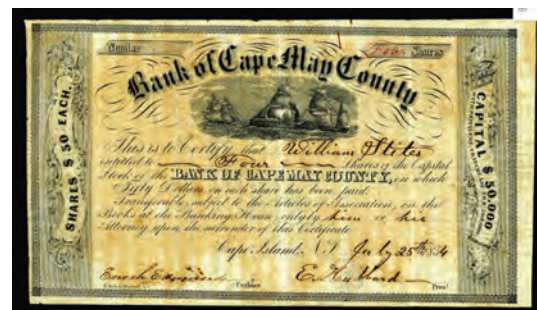 Number Four Shares
Bank of Cape May County
SHARES $ 50 EACH.
CAPITAL $ 50,000
This is to Certify that William Stites
entitled to Four Shares of the Capital
Stock of the BANK OF CAPE MAY COUNTY, on which
Dollars on each share has been paid.
Transferable, subject to the Articles of Association, on the
Books at the Banking House, only by him or his
Attorney upon the surrender of this Certificate
Cape Island, N.J. July 25th
Enoch Cashier E. Hubbard Prest